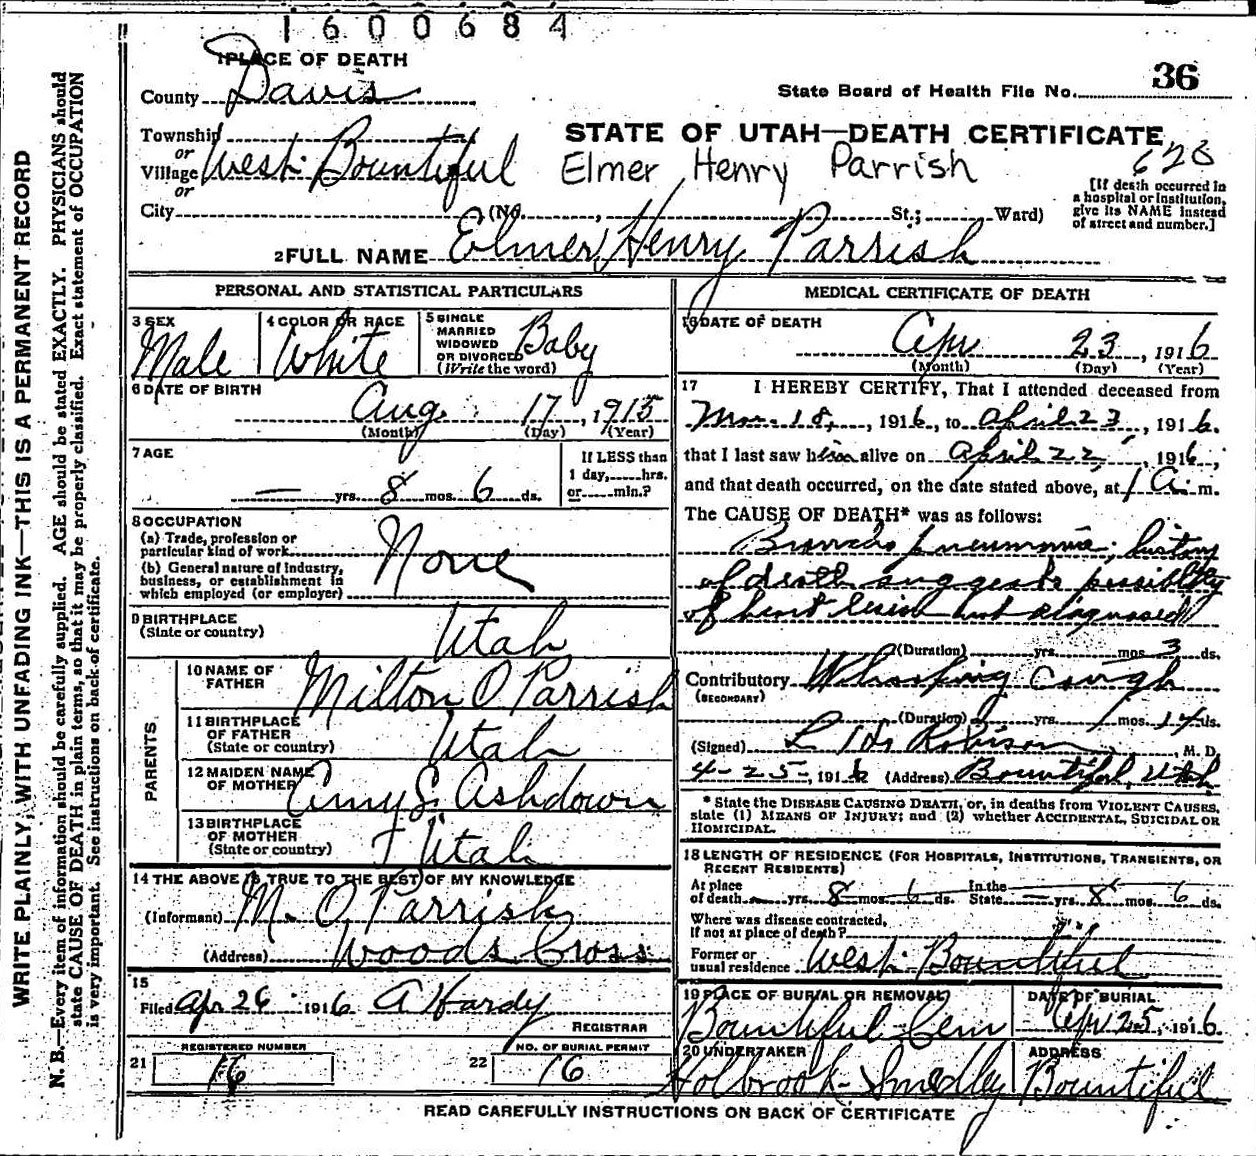 1600684
1 PLACE OF DEATH
County Davis
State Board of Health File No. 36
Township
or
Village West Bountiful
or
STATE OF UTAH—DEATH CERTIFICATE
Elmer Henry Parrish
628
[If death occurred in
a hospital or institution,
give its NAME instead
of street and number.]
City (No. , St.; Ward)
2 FULL NAME Elmer Henry Parrish
PERSONAL AND STATISTICAL PARTICULARS
3 SEX
Male
4 COLOR OR RACE
White
5 SINGLE
MARRIED
WIDOWED
OR DIVORCED
(Write the word)
Baby
6 DATE OF BIRTH
Aug. 17, 1915
(Month) (Day) (Year)
7 AGE
— yrs. 8 mos. 6 ds.
If LESS than
1 day, hrs.
or min.?
8 OCCUPATION
(a) Trade, profession or
particular kind of work
(b) General nature of industry,
business, or establishment in
which employed (or employer)
None
9 BIRTHPLACE
(State or country)
Utah
PARENTS
10 NAME OF
FATHER
Milton O Parrish
11 BIRTHPLACE
OF FATHER
(State or country)
Utah
12 MAIDEN NAME
OF MOTHER
Amy S. Ashdown
13 BIRTHPLACE
OF MOTHER
(State or country)
Utah
14 THE ABOVE IS TRUE TO THE BEST OF MY KNOWLEDGE
(Informant) M. O. Parrish
(Address) Woods Cross
15
Filed Apr 26 1916 A Hardy
REGISTRAR
21 REGISTERED NUMBER
16
22 NO. OF BURIAL PERMIT
16
MEDICAL CERTIFICATE OF DEATH
16 DATE OF DEATH
Apr 23, 1916
(Month) (Day) (Year)
17 I HEREBY CERTIFY, That I attended deceased from
18, 1916, to April 23, 1916.
that I last saw him alive on April 22, 1916,
and that death occurred, on the date stated above, at 1 A. m.
The CAUSE OF DEATH* was as follows:
Broncho pneumonia; history
of death suggests possibility
of heart lesion not diagnosed
(Duration) yrs. mos. 3 ds.
Contributory Whooping Cough
(SECONDARY)
(Duration) yrs. 1 mos. 14 ds.
(Signed) Robison, M. D.
4-25-, 1916 (Address) Bountiful, Utah
* State the DISEASE CAUSING DEATH, or, in deaths from VIOLENT CAUSES,
state (1) MEANS OF INJURY; and (2) whether ACCIDENTAL, SUICIDAL OR
HOMICIDAL.
18 LENGTH OF RESIDENCE (FOR HOSPITALS, INSTITUTIONS, TRANSIENTS, OR
RECENT RESIDENTS)
At place
of death — yrs. 8 mos. 6 ds. In the
State — yrs. 8 mos. 6 ds.
Where was disease contracted,
If not at place of death?
Former or
usual residence West Bountiful
19 PLACE OF BURIAL OR REMOVAL
Bountiful Cem
DATE OF BURIAL
Apr 25, 1916.
20 UNDERTAKER
Holbrook-Smedley
ADDRESS
Bountiful
READ CAREFULLY INSTRUCTIONS ON BACK OF CERTIFICATE
WRITE PLAINLY, WITH UNFADING INK—THIS IS A PERMANENT RECORD
N. B.—Every item of information should be carefully supplied. AGE should be stated EXACTLY. PHYSICIANS should
state CAUSE OF DEATH in plain terms, so that it may be properly classified. Exact statement of OCCUPATION
is very important. See instructions on back of certificate.